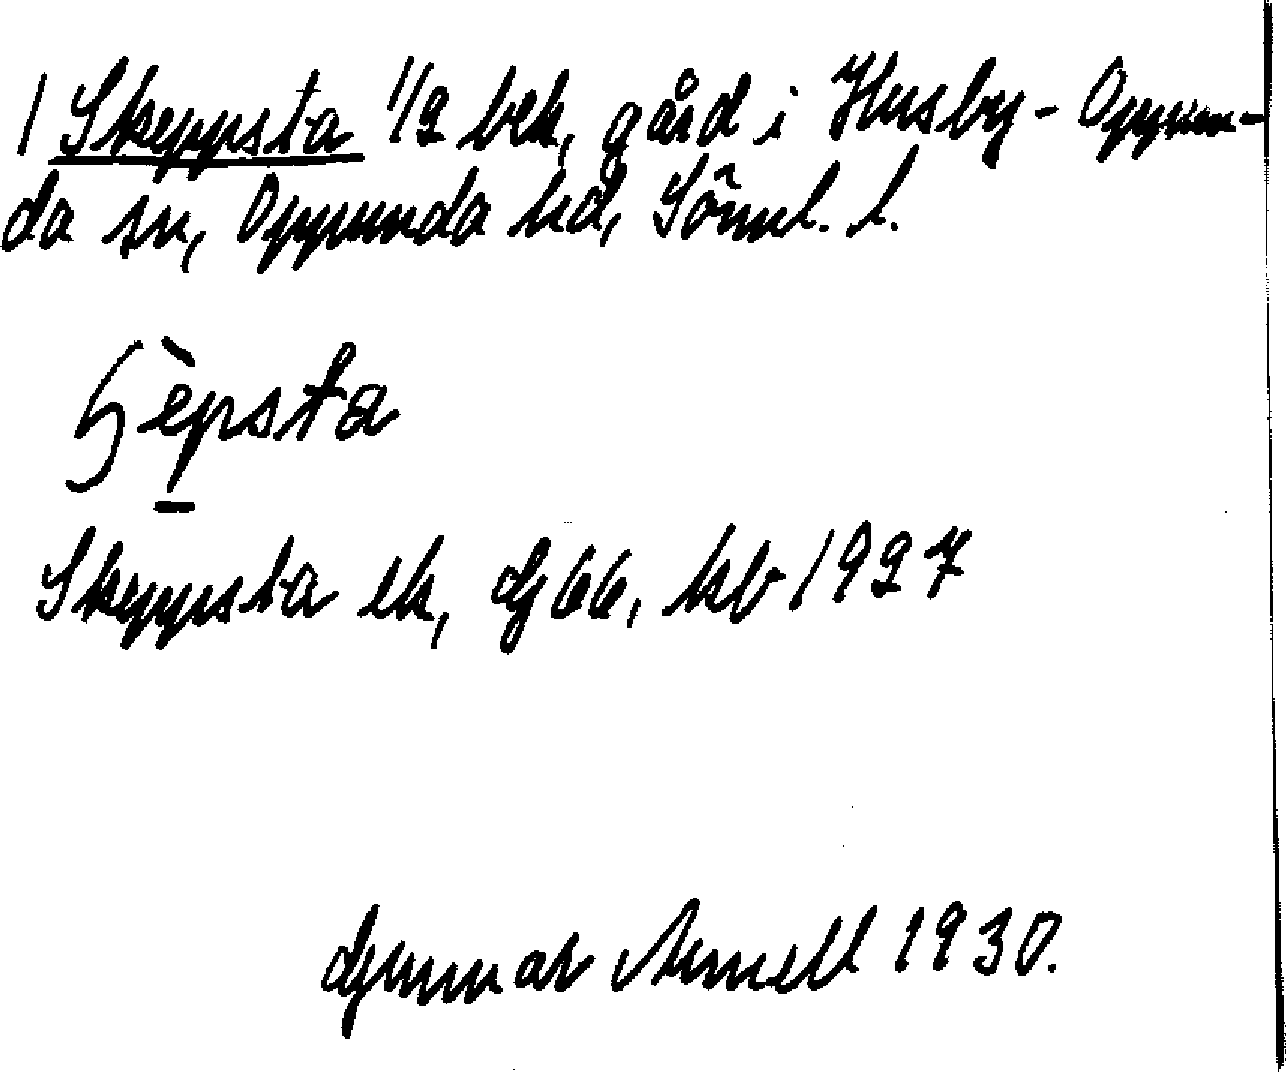 1 Skeppsta 1/2 bek, gård i Husby-Oppun-
da sn, Oppunda hd, Söml. l.
Sɧèpsta
Skeppsta ek, Gj 66, kb 1927
Gunnar Arnell 1930.